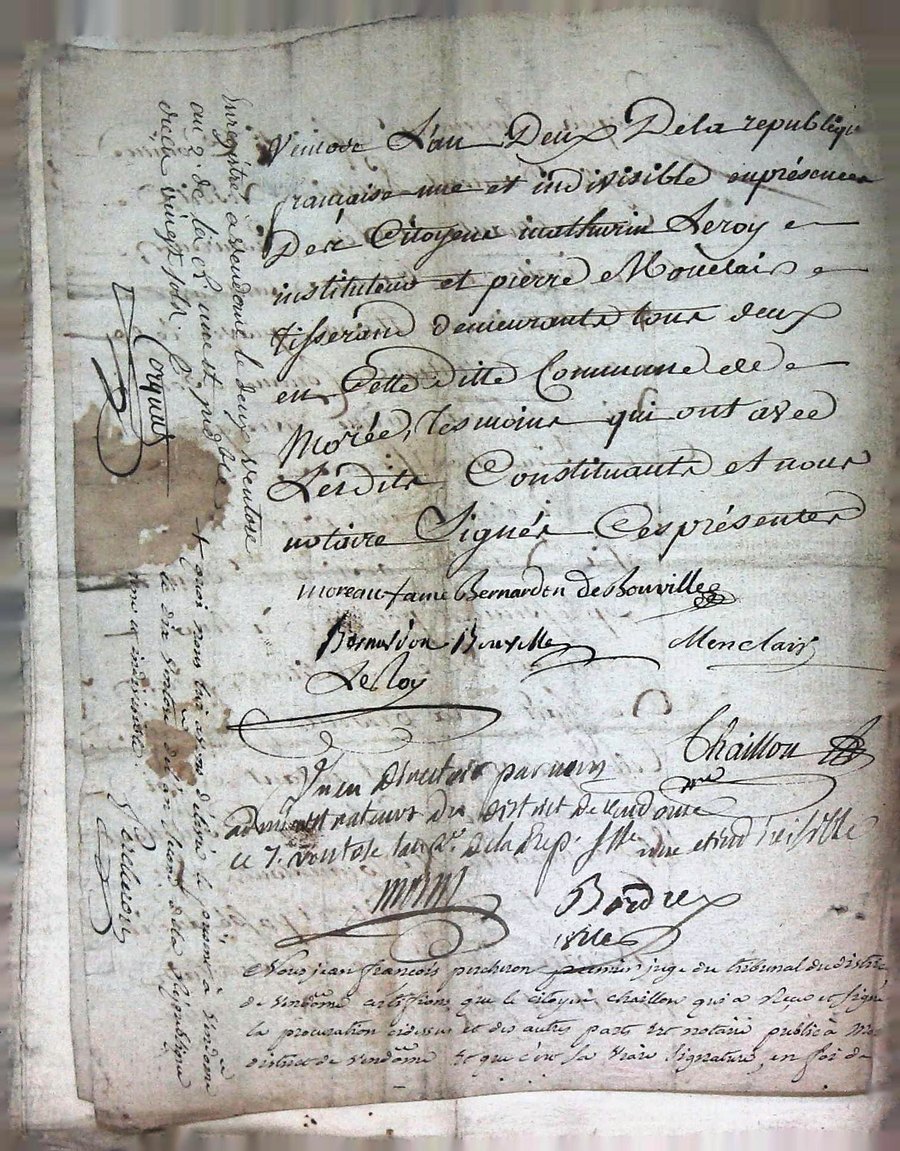 Ventose L'an Deux De la republique
française une et indivisible en présence
Des Citoyens mathurin Leroy
instituteur et pierre Monclair
tisserand demeurants tous deux
en Cette ditte Commune de
Morée, tesmoins qui ont avec
Lesdits Constituants et nous
notaire Signés Ces présentes
moreau fame Bernardon de Bouville
Bernardon Bouville Menclair
LeRoy
Chaillou
Vu en directoir par nous
administrateurs du district de vendome
ce 7. ventose l'an 2e. de la Rep. fse une et indivisible
Bordre
Nous jean françois percheron premier juge du tribunal du district
de vendôme certifions que le citoyen chaillou qui a reçu et signé
la procuration cidessus et des autres parts est notaire public à
district de vendôme et que c'est sa vraie signature, en foi de
+ quoi nous lui avons délivré le présent à vendome
le dix ventose de l'an deux de la République
une et indivisible. Percheron
Enregistré à vendome le deux ventose
an 2e de la R. une et indible
reçu vingt sols.